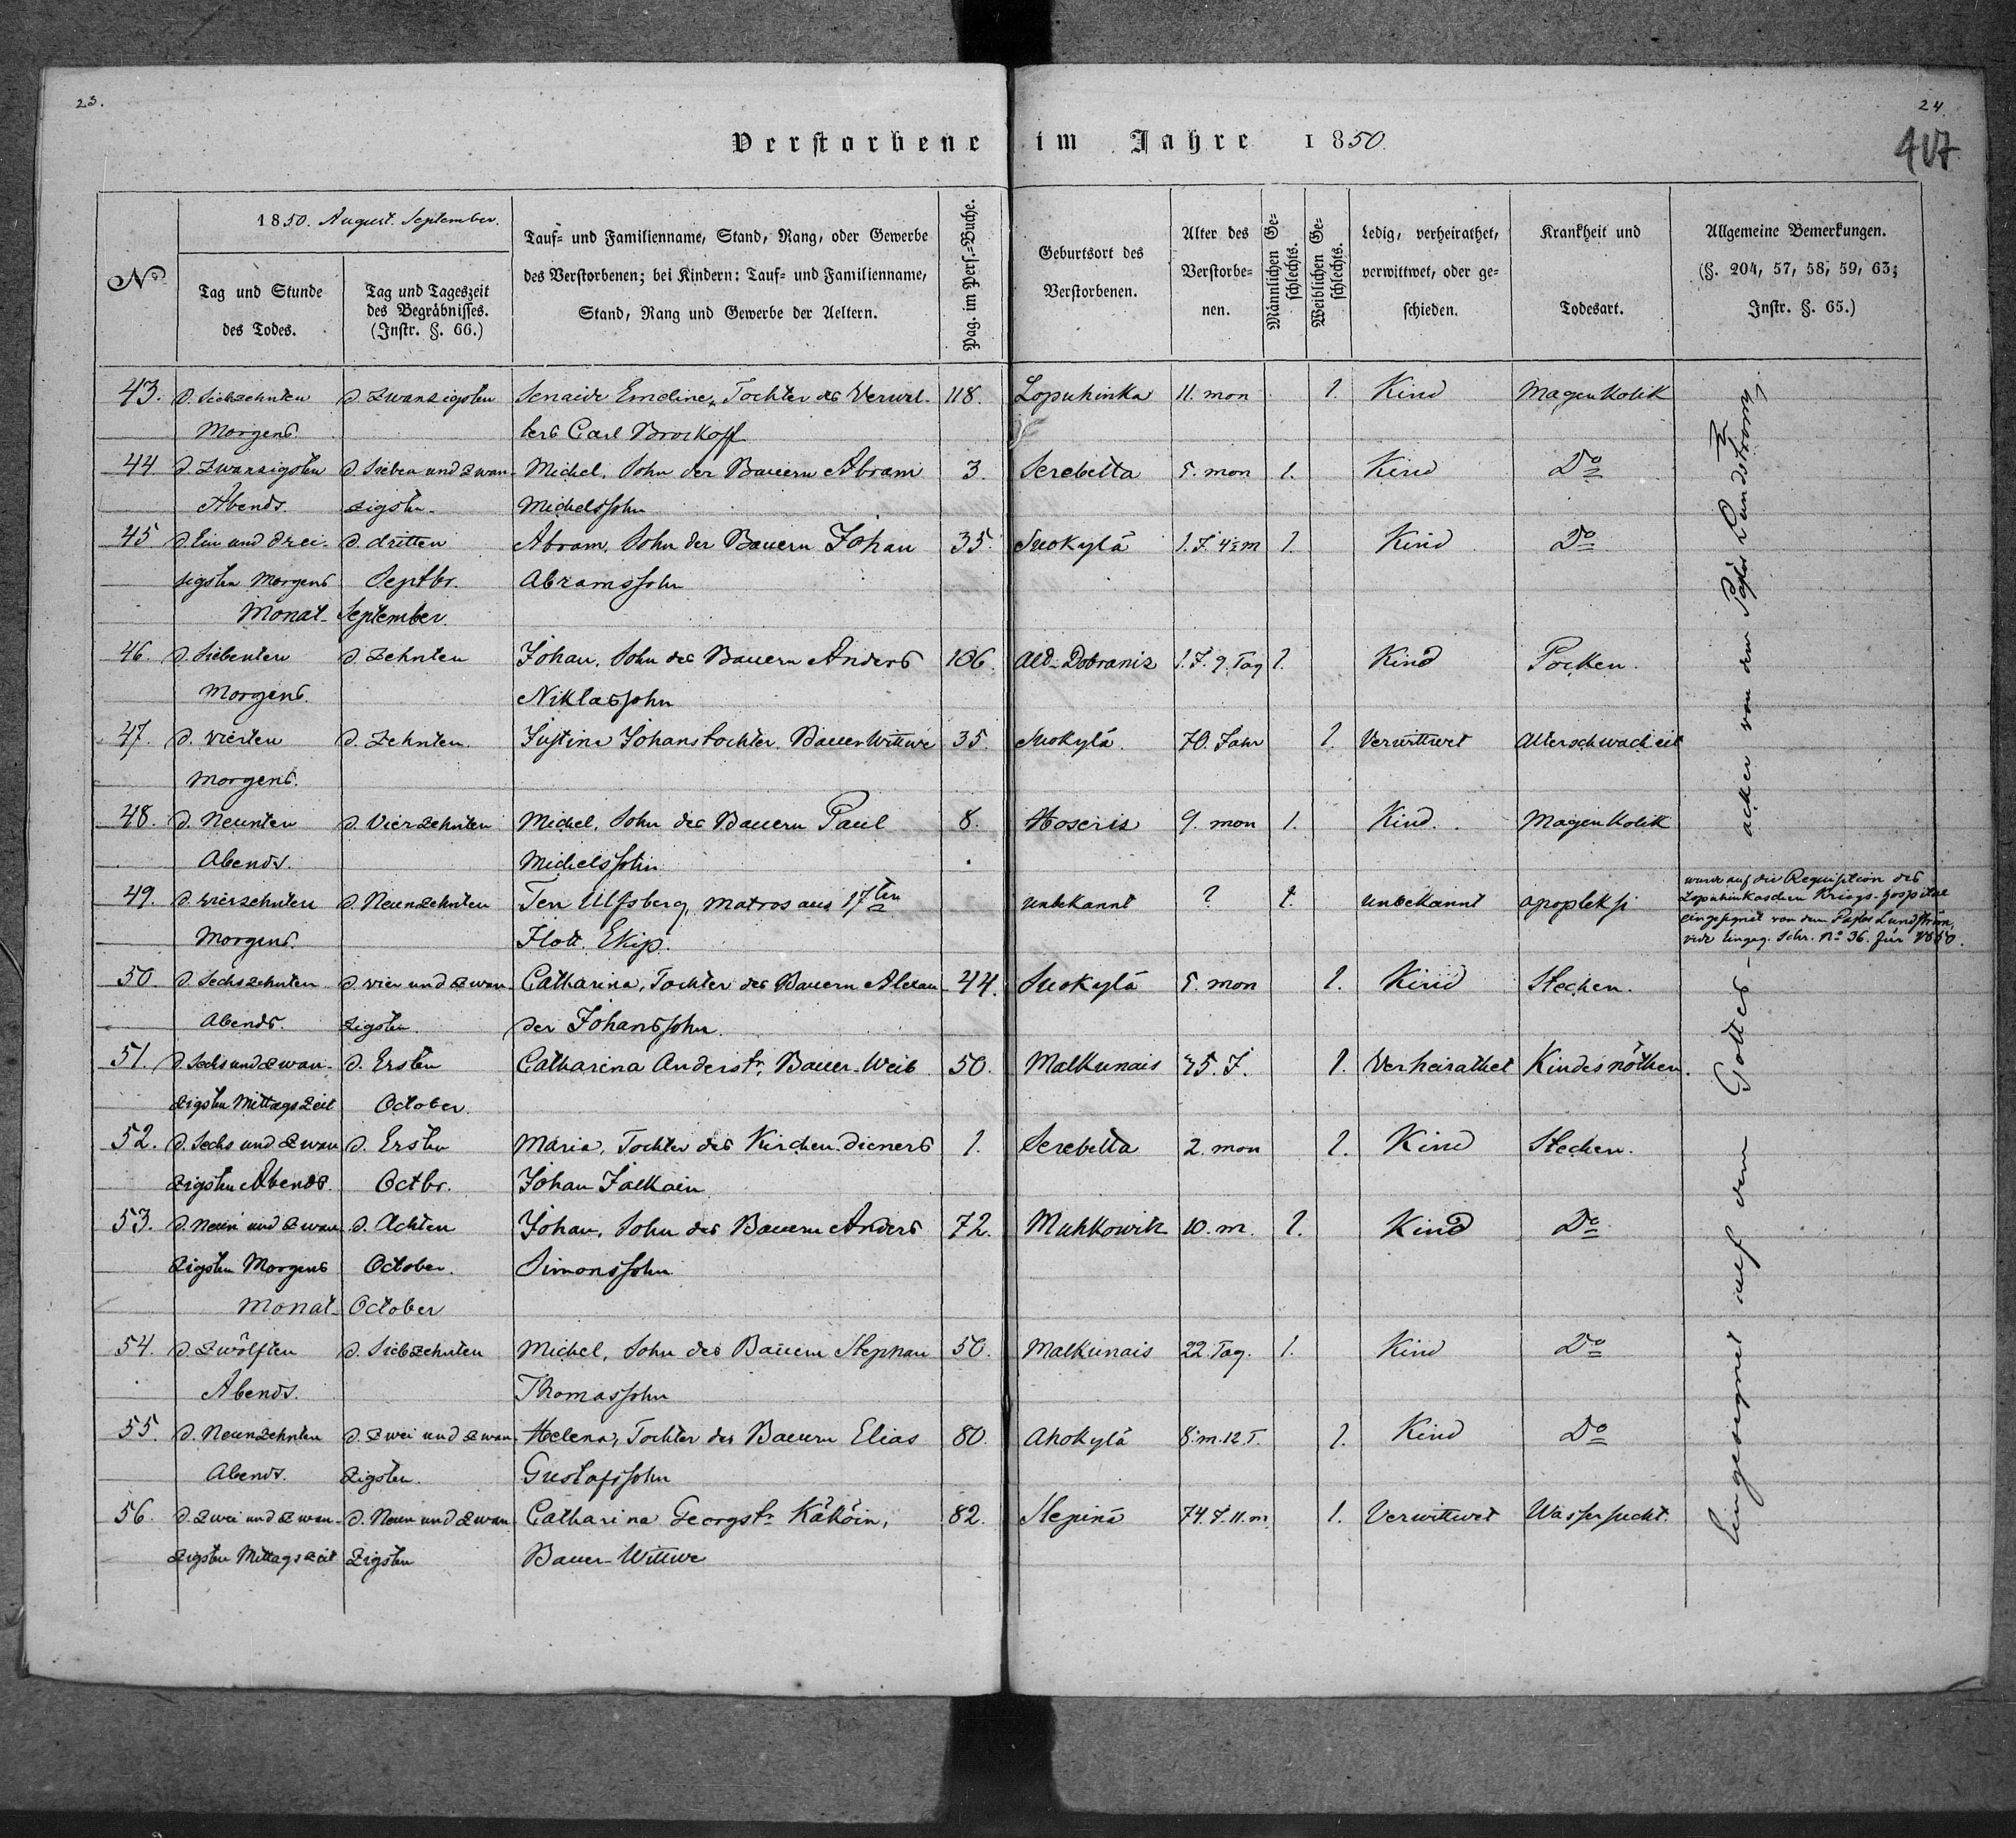 23.
24
417
Verstorbene im Jahre 1850.
No
1850. August. September.
Tag und Stunde des Todes.
Tag und Tageszeit des Begräbnisses. (Instr. §. 66.)
Tauf= und Familienname, Stand, Rang, oder Gewerbe des Verstorbenen; bei Kindern: Tauf= und Familienname, Stand, Rang und Gewerbe der Aeltern.
Pag. im Pers.=Buche.
Geburtsort des Verstorbenen.
Alter des Verstorbe=nen.
Männlichen Ge=schlechts.
Weiblichen Ge=schlechts.
Ledig, verheirathet, verwittwet, oder ge=schieden.
Krankheit und Todesart.
Allgemeine Bemerkungen. (§. 204, 57, 58, 59, 63; Instr. §. 65.)
43. d. Siebzehnten d. Zwanzigsten Senaide Emeline, Tochter des Verwal- 118. Lopuhinka 11. mon 1. Kind Magenkolik
Morgens. ters Carl Brockopf
44. d. Zwanzigsten d. Sieben und Zwan- Michel, Sohn der Bauern Abram 3. Serebetta 5. mon 1. Kind Do
Abends. zigsten. Michelssohn
45. d. Ein und drei- d. dritten Abram, Sohn der Bauern Johan 35. Suokylä 1. J. 4½ m 1. Kind Do
sigsten Morgens Septbr. Abramssohn
Monat September.
46. d. Siebenten d. Zehnten Johan, Sohn des Bauern Anders 106. Ald-Dobraniz 1. J. 9. Tag 1. Kind Pocken.
Morgens. Niklassohn
47. d. vierten d. Zehnten. Justina Johanstochter. Bauer Wittwe 35. Suokylä. 70. Jahr 1. Verwittwet Alterschwacheit
Morgens.
48. d. Neunten d. Vierzehnten Michel, Sohn des Bauern Paul 8. Hoseris 9. mon 1. Kind. Magenkolik
Abends. Michelssohn
49. d. vierzehnten d. Neunzehnten Ten Ulfsberg, matros aus 17ten unbekannt ? 1. unbekannt apopleksi
Morgens. Flott. Ekip.
wurde auf die Requisition des
Lopuhinkaschen Kriegs-hospital
eingesegnet von dem Pastor Lundström,
vide Eingeg. Schr. No 36. für 1850.
50. d. Sechszehnten d. vier und zwan- Catharina, Tochter des Bauern Alexan 44. Suokylä 5. mon 1. Kind Stechen.
Abends. zigsten. der Johanssohn.
51. d. Sechs und zwan- d. Ersten Catharina Anderstr. Bauer-Weib 50. Malkunais 35. J. 1. Verheirathet Kindesnöthen.
zigsten Mittagszeit October.
52. d. Sechs und zwan d. Ersten Maria, Tochter des Kirchen-dieners 1. Serebetta 2. mon 1. Kind Stechen.
zigsten Abends. Octbr. Johan Jälkäin
53. d. Neun und zwan d. Achten Johan, Sohn des Bauern Anders 72. Muhkowitz 10. m. 1. Kind Do
zigsten Morgens October. Simonssohn
Monat October
54. d. Zwölften d. Siebzehnten Michel, Sohn des Bauern Stephan 50. Malkunais 22. Tag. 1. Kind Do
Abends. Thomassohn
55. d. Neunzehnten d. Zwei und zwan Helena, Tochter des Bauern Elias 80. Ahokylä 8. m. 12. T. 1. Kind Do
Abends. zigsten. Gustafssohn
56. d. Zwei und zwan- d. Neun und zwan Catharina Georgstr Käköin, 82. Stepinä 74. J. 11. m. 1. Verwittwet Wassersucht.
zigsten Mittagszeit zigsten Bauer-Wittwe
Eingesegnet auf dem Gottes-acker von dem Pastor Lundström.